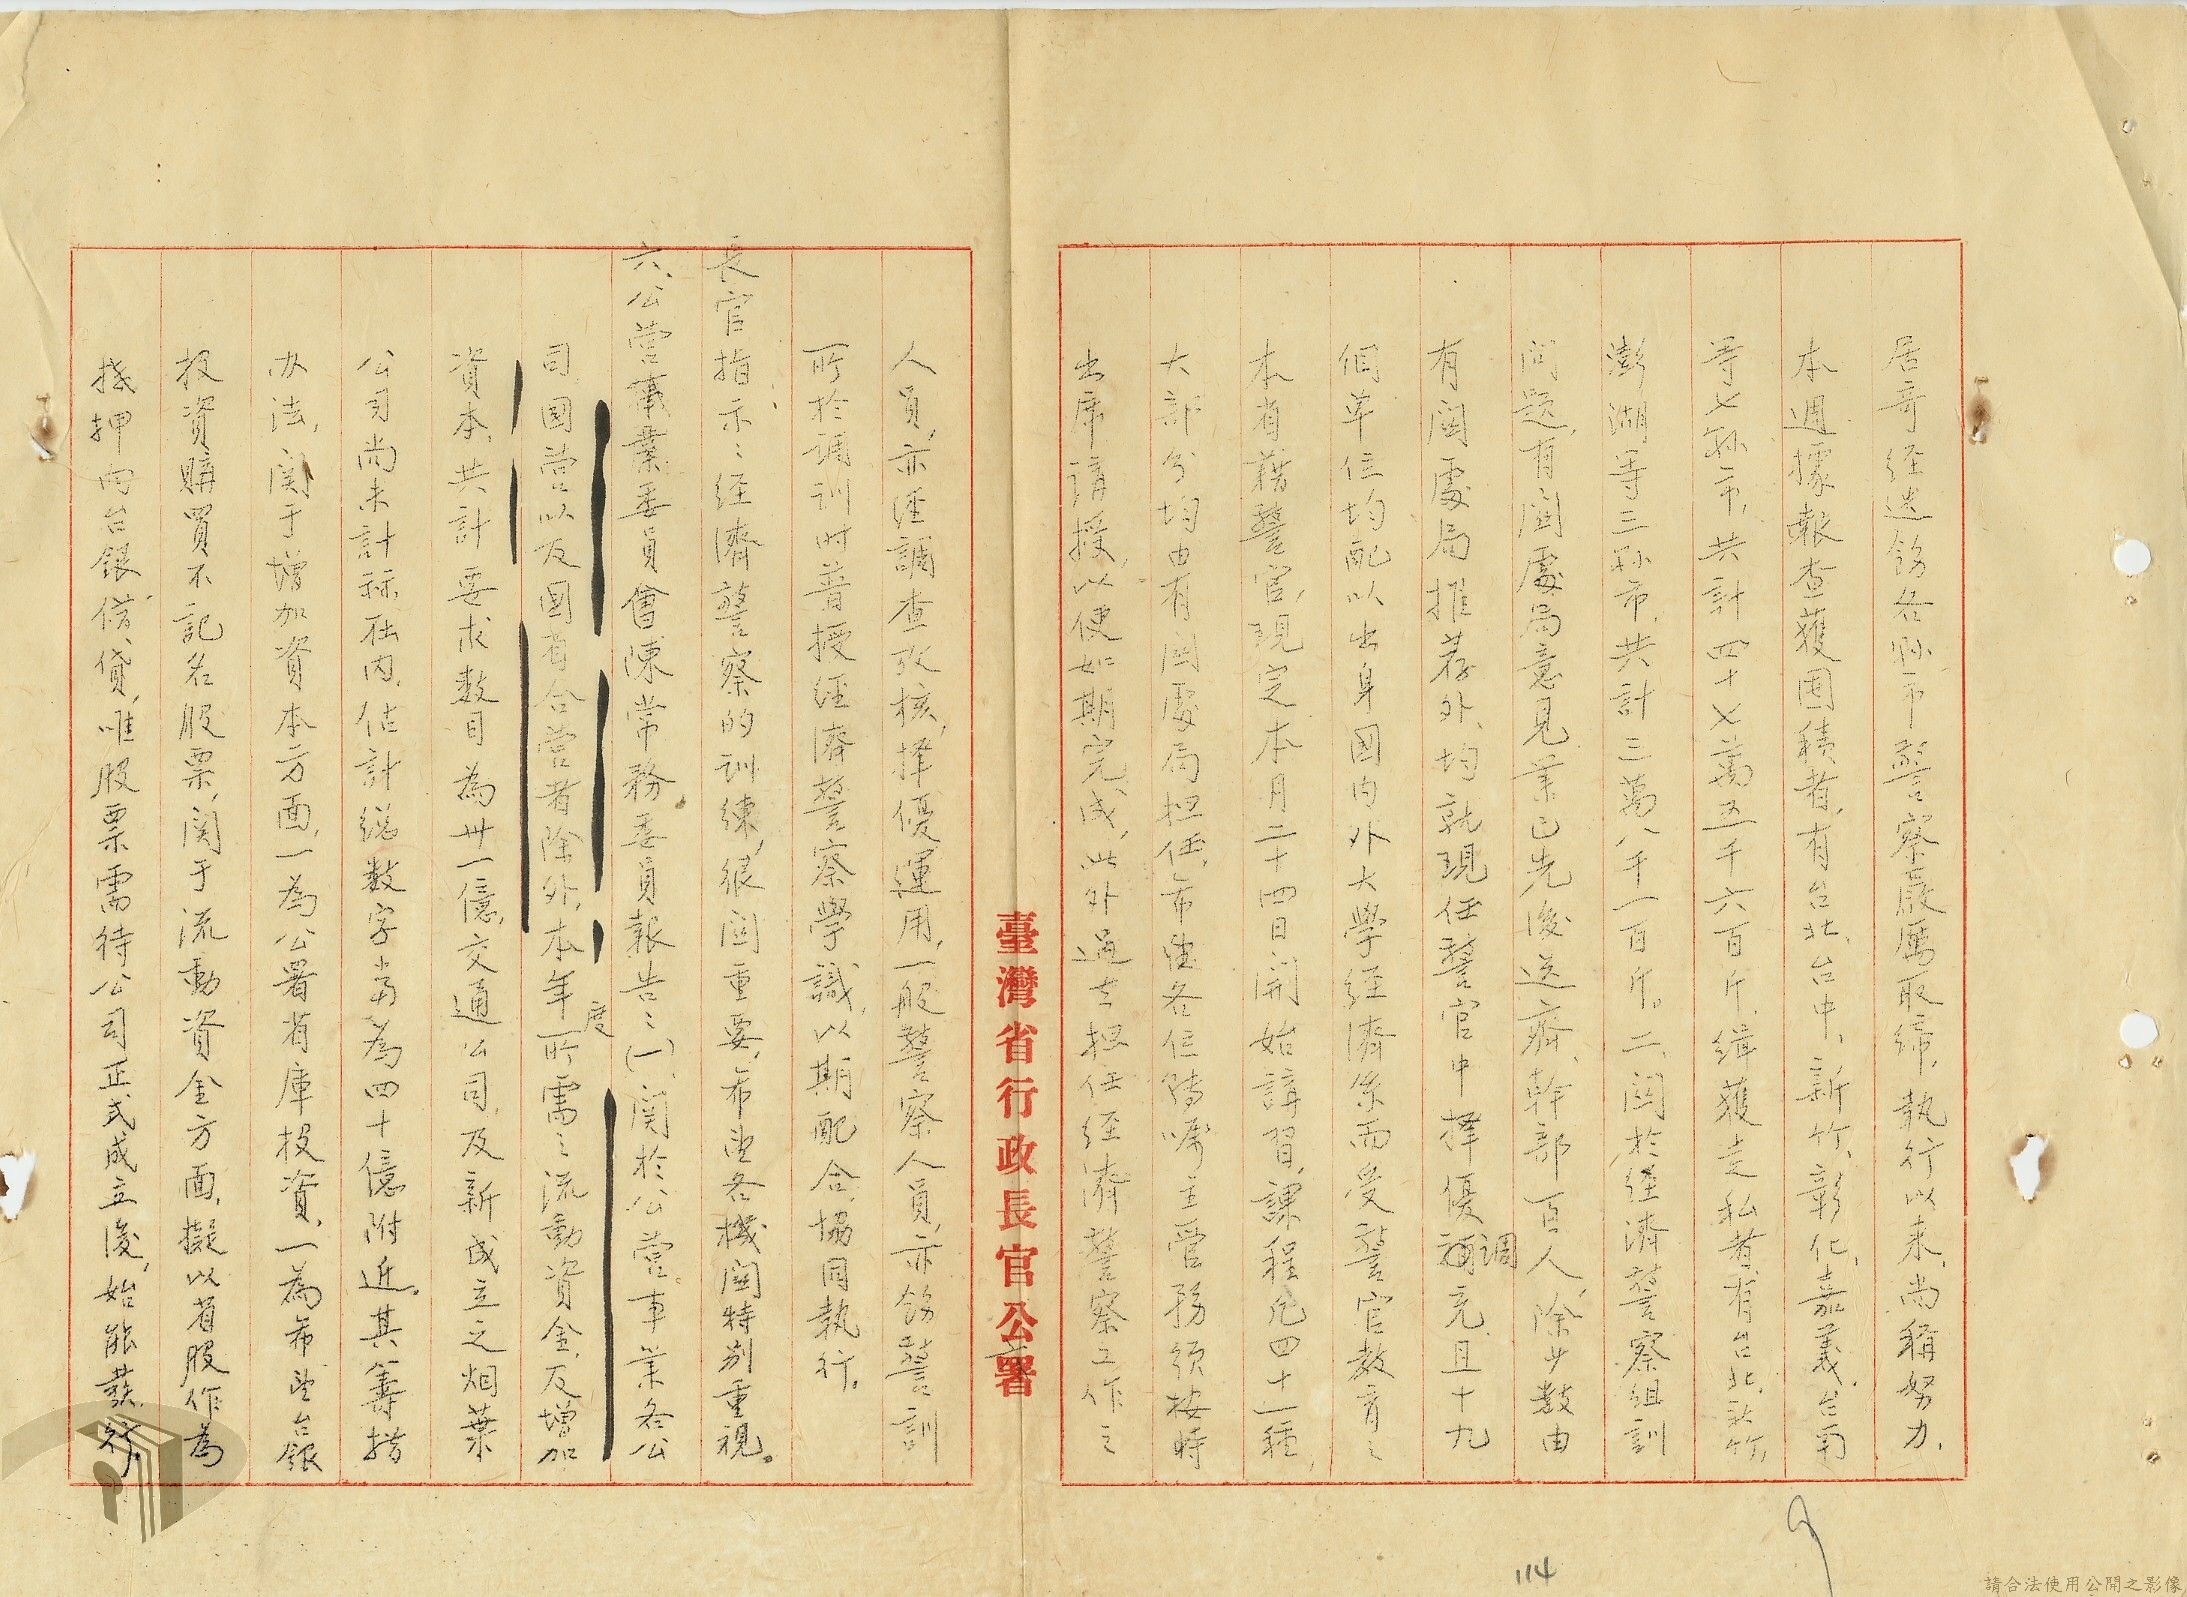 居奇経迭飭各縣市警察嚴厲取締，執行以来，尚稱努力，
本週據報查獲囤積者，有台北、台中、新竹、彰化、嘉義、台南
等七縣市，共計四十七萬五千六百斤，緝獲走私者，有台北、新竹、
澎湖等三縣市，共計三萬八千一百斤。二、關於経濟警察組訓
問題，有關處局意見業已先後送齊，幹部百人，除少数由
有關處局推荐外，均就現任警官中擇優調充，且十九
個单位均配以出身國内外大學経濟系而受警官教育之
本省籍警官，現定本月二十四日開始講習，課程凡四十一種，
大部分均由有関處局担任，希望各位轉嘱主管務須按時
出席講授，以便如期完成，此外過去担任経濟警察工作之
臺灣省行政長官公署
人員，亦経調查攷核，擇優運用，一般警察人員，亦飭警訓
所於調訓时普授経濟警察學識，以期配合，協同執行。
長官指示：経濟警察的训練，很関重要，希望各機関特别重視。
六、公营事業委員會陳常務委員報告：(一)関於公营事業各公
司，國营以及國省合营者除外，本年度所需之流動資金，及增加
資本，共計要求數目為卅一億，交通公司，及新成立之烟葉
公司尚未計祘在內，估計總数字当為四十億附近。其籌措
办法，関于增加資本方面，一為公署省庫投資，一為希望台銀
投資購買不記名股票，関于流動資金方面，擬以省股作為
抵押向台銀借貸，唯股票需待公司正式成立後，始能發行，
114
請合法使用公開之影像